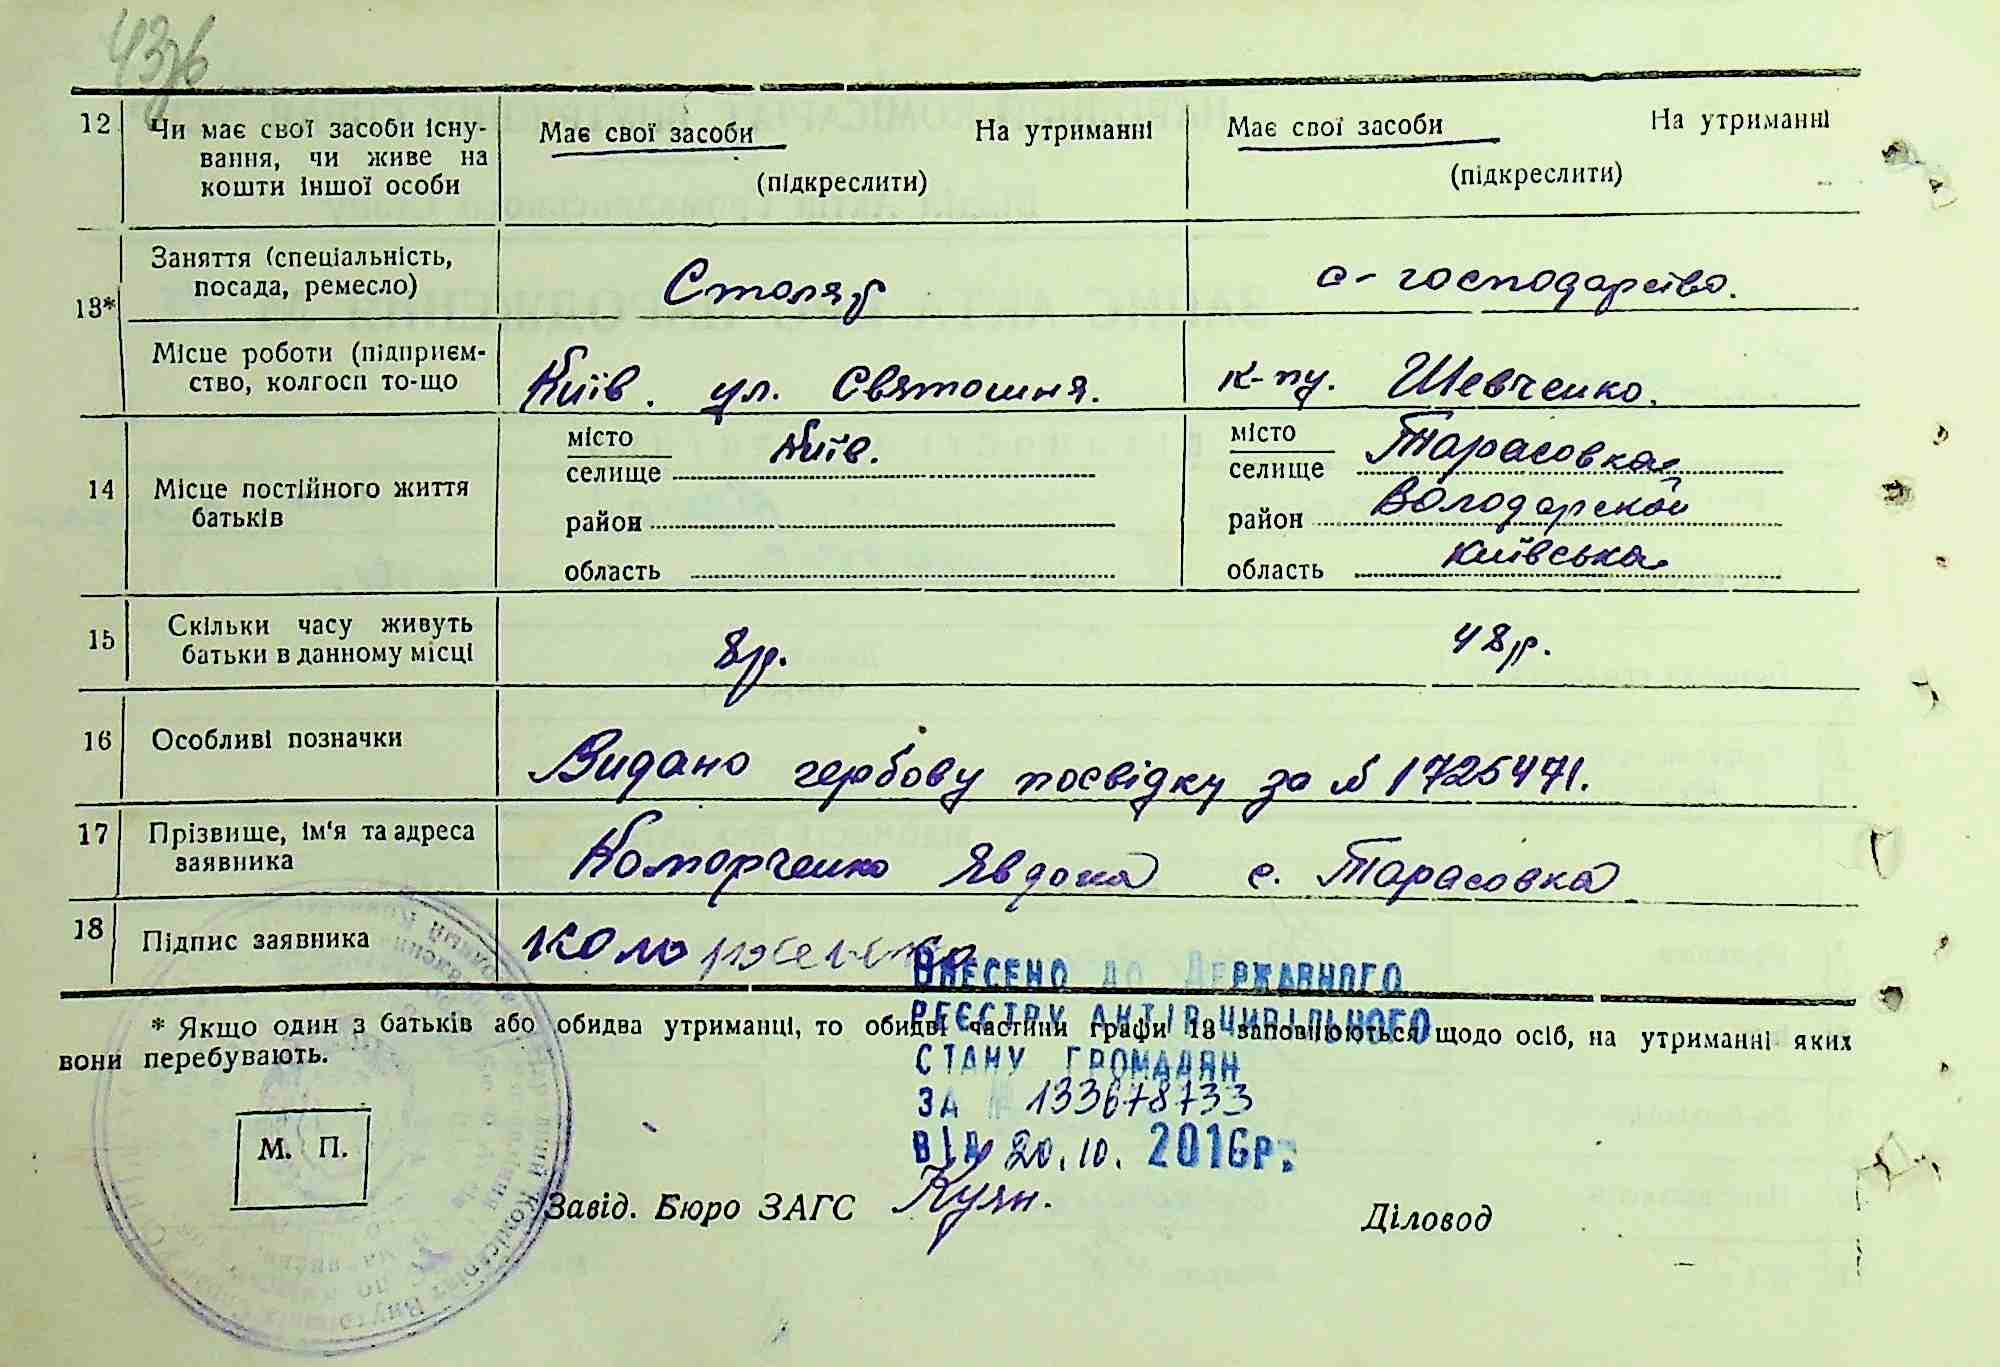 43зв
12 Чи має свої засоби існу- Має свої засоби На утриманні Має свої засоби На утриманні
вання, чи живе на
кошти іншої особи (підкреслити) (підкреслити)
13* Заняття (спеціальність,
посада, ремесло) Столяр с-господарство.
Місце роботи (підприєм-
ство, колгосп то-що Київ. ул. Святошня. к-пу. Шевченко.
14 Місце постійного життя
батьків
місто Київ.
селище
район
область
місто Тарасовка
селище
район Володарской
область київська
15 Скільки часу живуть
батьки в данному місці 8р. 48р.
16 Особливі позначки Видано гербову посвідку за № 1725471.
17 Прізвище, ім'я та адреса
заявника Коморченко Явдоха с. Тарасовка
18 Підпис заявника
* Якщо один з батьків або обидва утриманці, то обидві частини графи 13 заповнюються щодо осіб, на утриманні яких
вони перебувають.
Внесено до Державного
реєстру актів цивільного
стану громадян
за № 133678733
від 20.10. 2016р.
М. П.
Завід. Бюро ЗАГС Куян. Діловод